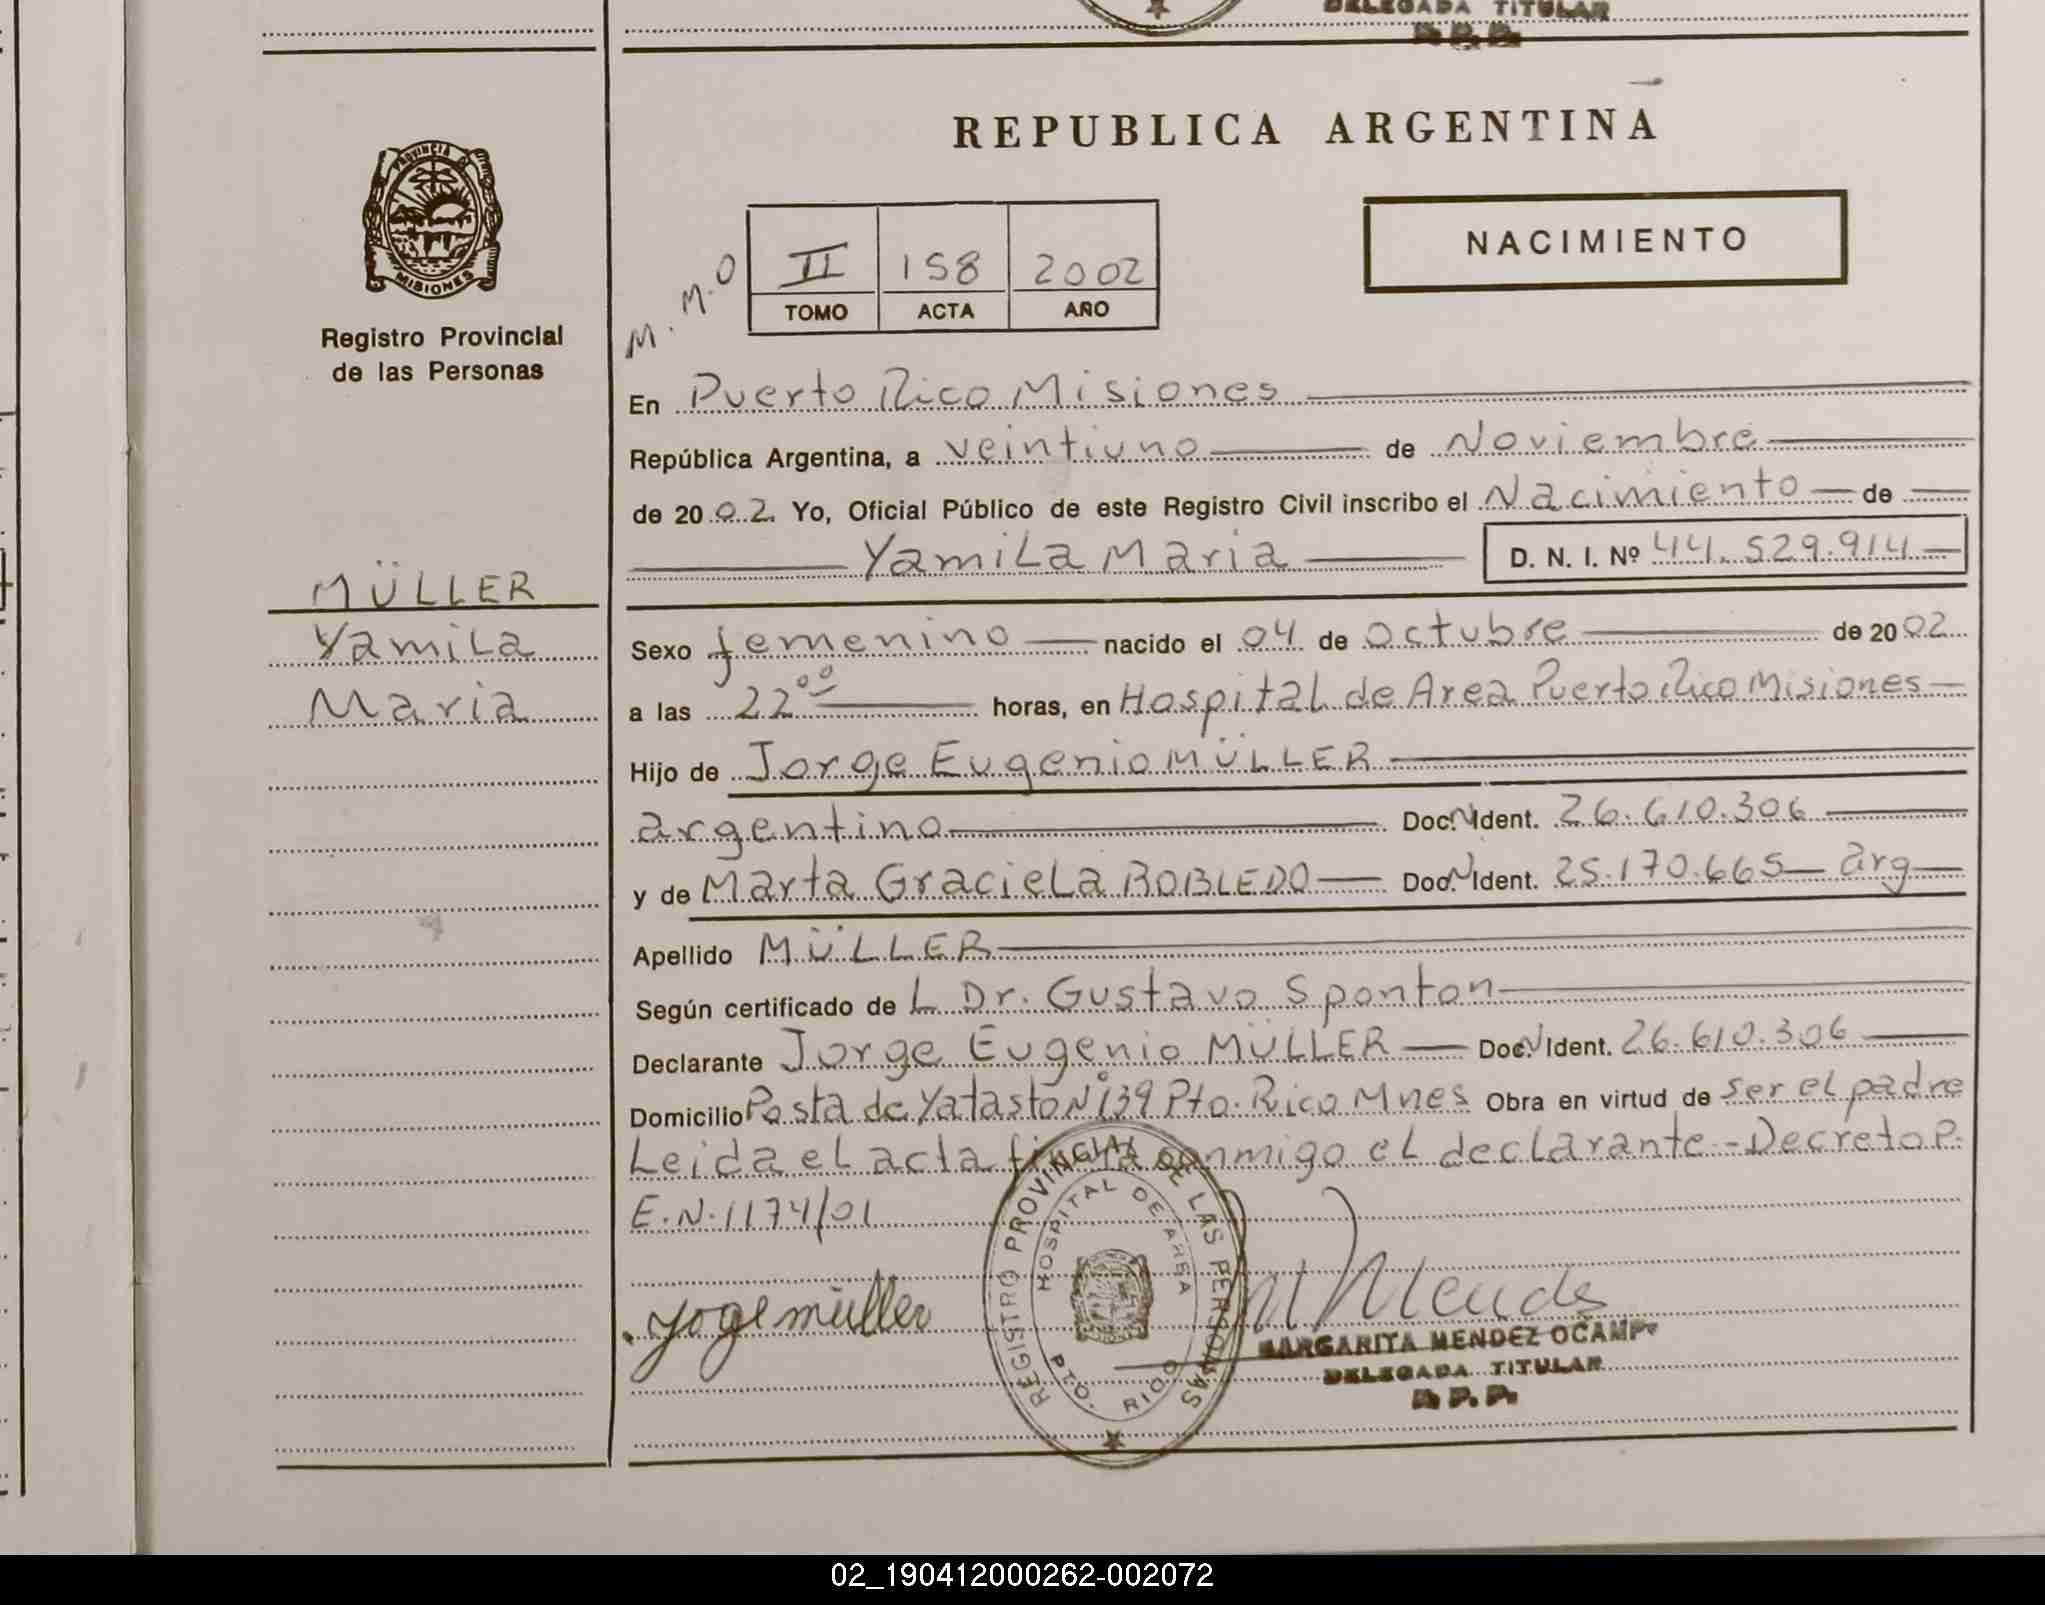 DELEGADA TITULAR
REPUBLICA ARGENTINA
PROVINCIA DE
MISIONES
Registro Provincial
de las Personas
M.M.O
II 158 2002
TOMO ACTA AÑO
NACIMIENTO
En Puerto Rico Misiones
República Argentina, a veintiuno de Noviembre
de 2002. Yo, Oficial Público de este Registro Civil inscribo el Nacimiento de
Yamila Maria D. N. I. Nº 44.529.914
MÜLLER
Yamila
Maria
Sexo femenino nacido el 04 de Octubre de 2002
a las 22⁰⁰ horas, en Hospital de Area Puerto Rico Misiones
Hijo de Jorge Eugenio MÜLLER
argentino Doc. N Ident. 26.610.306
y de Marta Graciela ROBLEDO Doc. N Ident. 25.170.665 arg
Apellido MÜLLER
Según certificado de L Dr. Gustavo Sponton
Declarante Jorge Eugenio MÜLLER Doc. N Ident. 26.610.306
Domicilio Posta de Yatasto N° 139 Pto. Rico Mnes Obra en virtud de ser el padre
Leida el acta firma conmigo el declarante - Decreto P.
E.N. 1174/01
REGISTRO PROVINCIAL DE LAS PERSONAS
HOSPITAL DE AREA
PTO. RICO
Joge müller
MARGARITA MENDEZ OCAMPO
DELEGADA TITULAR
02_190412000262-002072